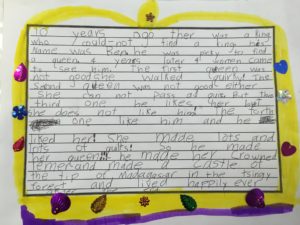 10 years ago ther was a king
who could not find a king his
name was Ben he was picky to find
a queen 4 years later 4 women came
to see him. The first queen was
not good she walked quirky! The
second queen was not good either
She can not pass at quis. But the
third one he likes her but
she does not like him! The forth
one he like him and he
liked her! She made lots and
lots of quilts! So he made
her queen! he made her crowned
and made a castle at
the tip of Madagascar in the tsingy
forest and lived happily ever